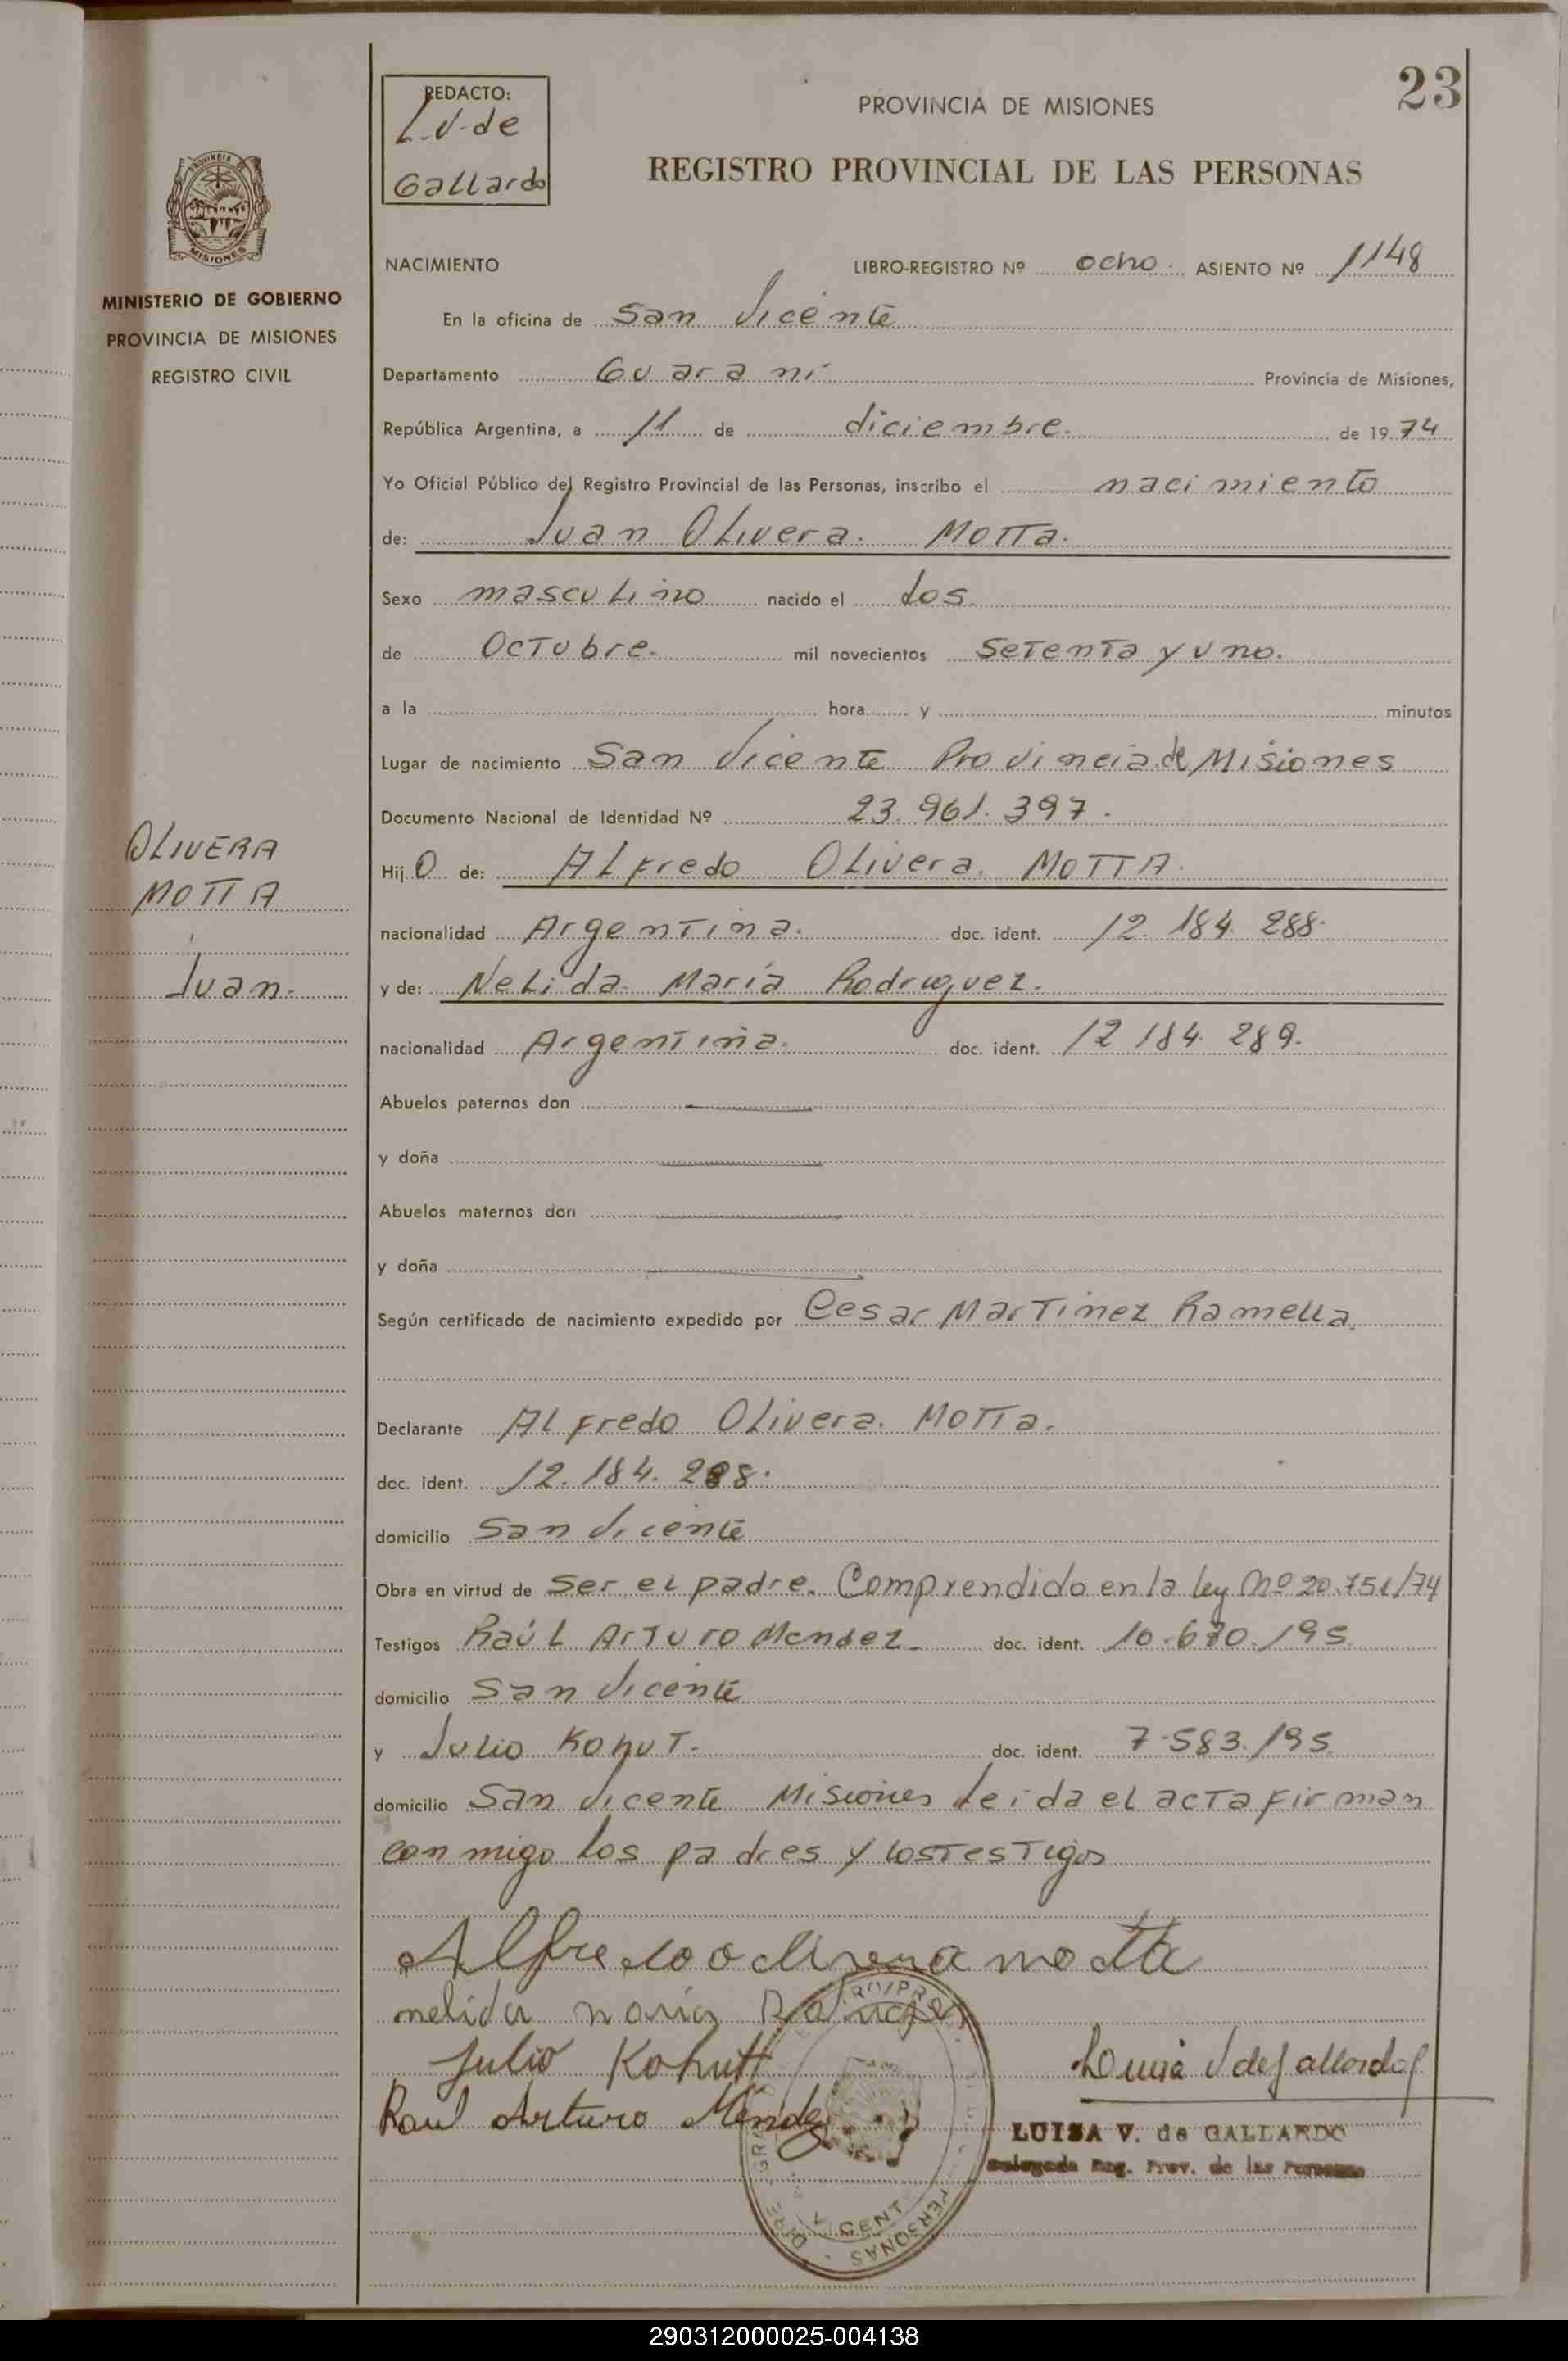 23
REDACTO:
L.V. de
Gallardo
PROVINCIA DE MISIONES
REGISTRO PROVINCIAL DE LAS PERSONAS
MISIONES
MINISTERIO DE GOBIERNO
PROVINCIA DE MISIONES
REGISTRO CIVIL
NACIMIENTO LIBRO-REGISTRO Nº ocho. ASIENTO Nº 1148
En la oficina de San Vicente
Departamento Guaraní Provincia de Misiones,
República Argentina, a 11 de diciembre. de 1974
Yo Oficial Público del Registro Provincial de las Personas, inscribo el nacimiento
de: Juan Olivera. Motta.
Sexo masculino nacido el dos.
de Octubre. mil novecientos Setenta y uno.
a la hora y minutos
Lugar de nacimiento San Vicente Provincia de Misiones
Documento Nacional de Identidad Nº 23.961.397.
OLIVERA
MOTTA
Juan.
Hijo de: Alfredo Olivera. MOTTA.
nacionalidad Argentina. doc. ident. 12.184.288.
y de: Nelida María Rodriguez.
nacionalidad Argentina. doc. ident. 12.184.289.
Abuelos paternos don
y doña
Abuelos maternos don
y doña
Según certificado de nacimiento expedido por Cesar Martinez Ramella.
Declarante Alfredo Olivera. Motta.
doc. ident. 12.184.288.
domicilio San Vicente
Obra en virtud de Ser el padre. Comprendido en la ley Nº 20.751/74
Testigos Raúl Arturo Mendez doc. ident. 10.680.195
domicilio San Vicente
y Julio Kohut. doc. ident. 7.583.195
domicilio San Vicente Misiones leida el acta firman
con migo los padres y los testigos
Alfredo olivera motta
nelida maria
Julio Kohutt
Raul Arturo Méndez
Luisa V de Gallardo
LUISA V. de GALLARDO
Delegada Reg. Prov. de las Personas
PERSONAS
290312000025-004138